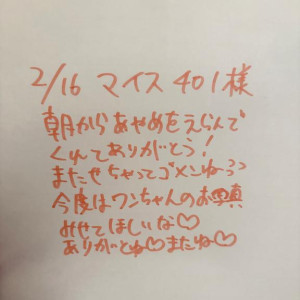 2/16 マイス 401様
朝からあやめをえらんで
くれてありがとう!
またせちゃってゴメンねっ
今度はワンちゃんのお写真
みせてほしいな♡
ありがとね♡またね♡